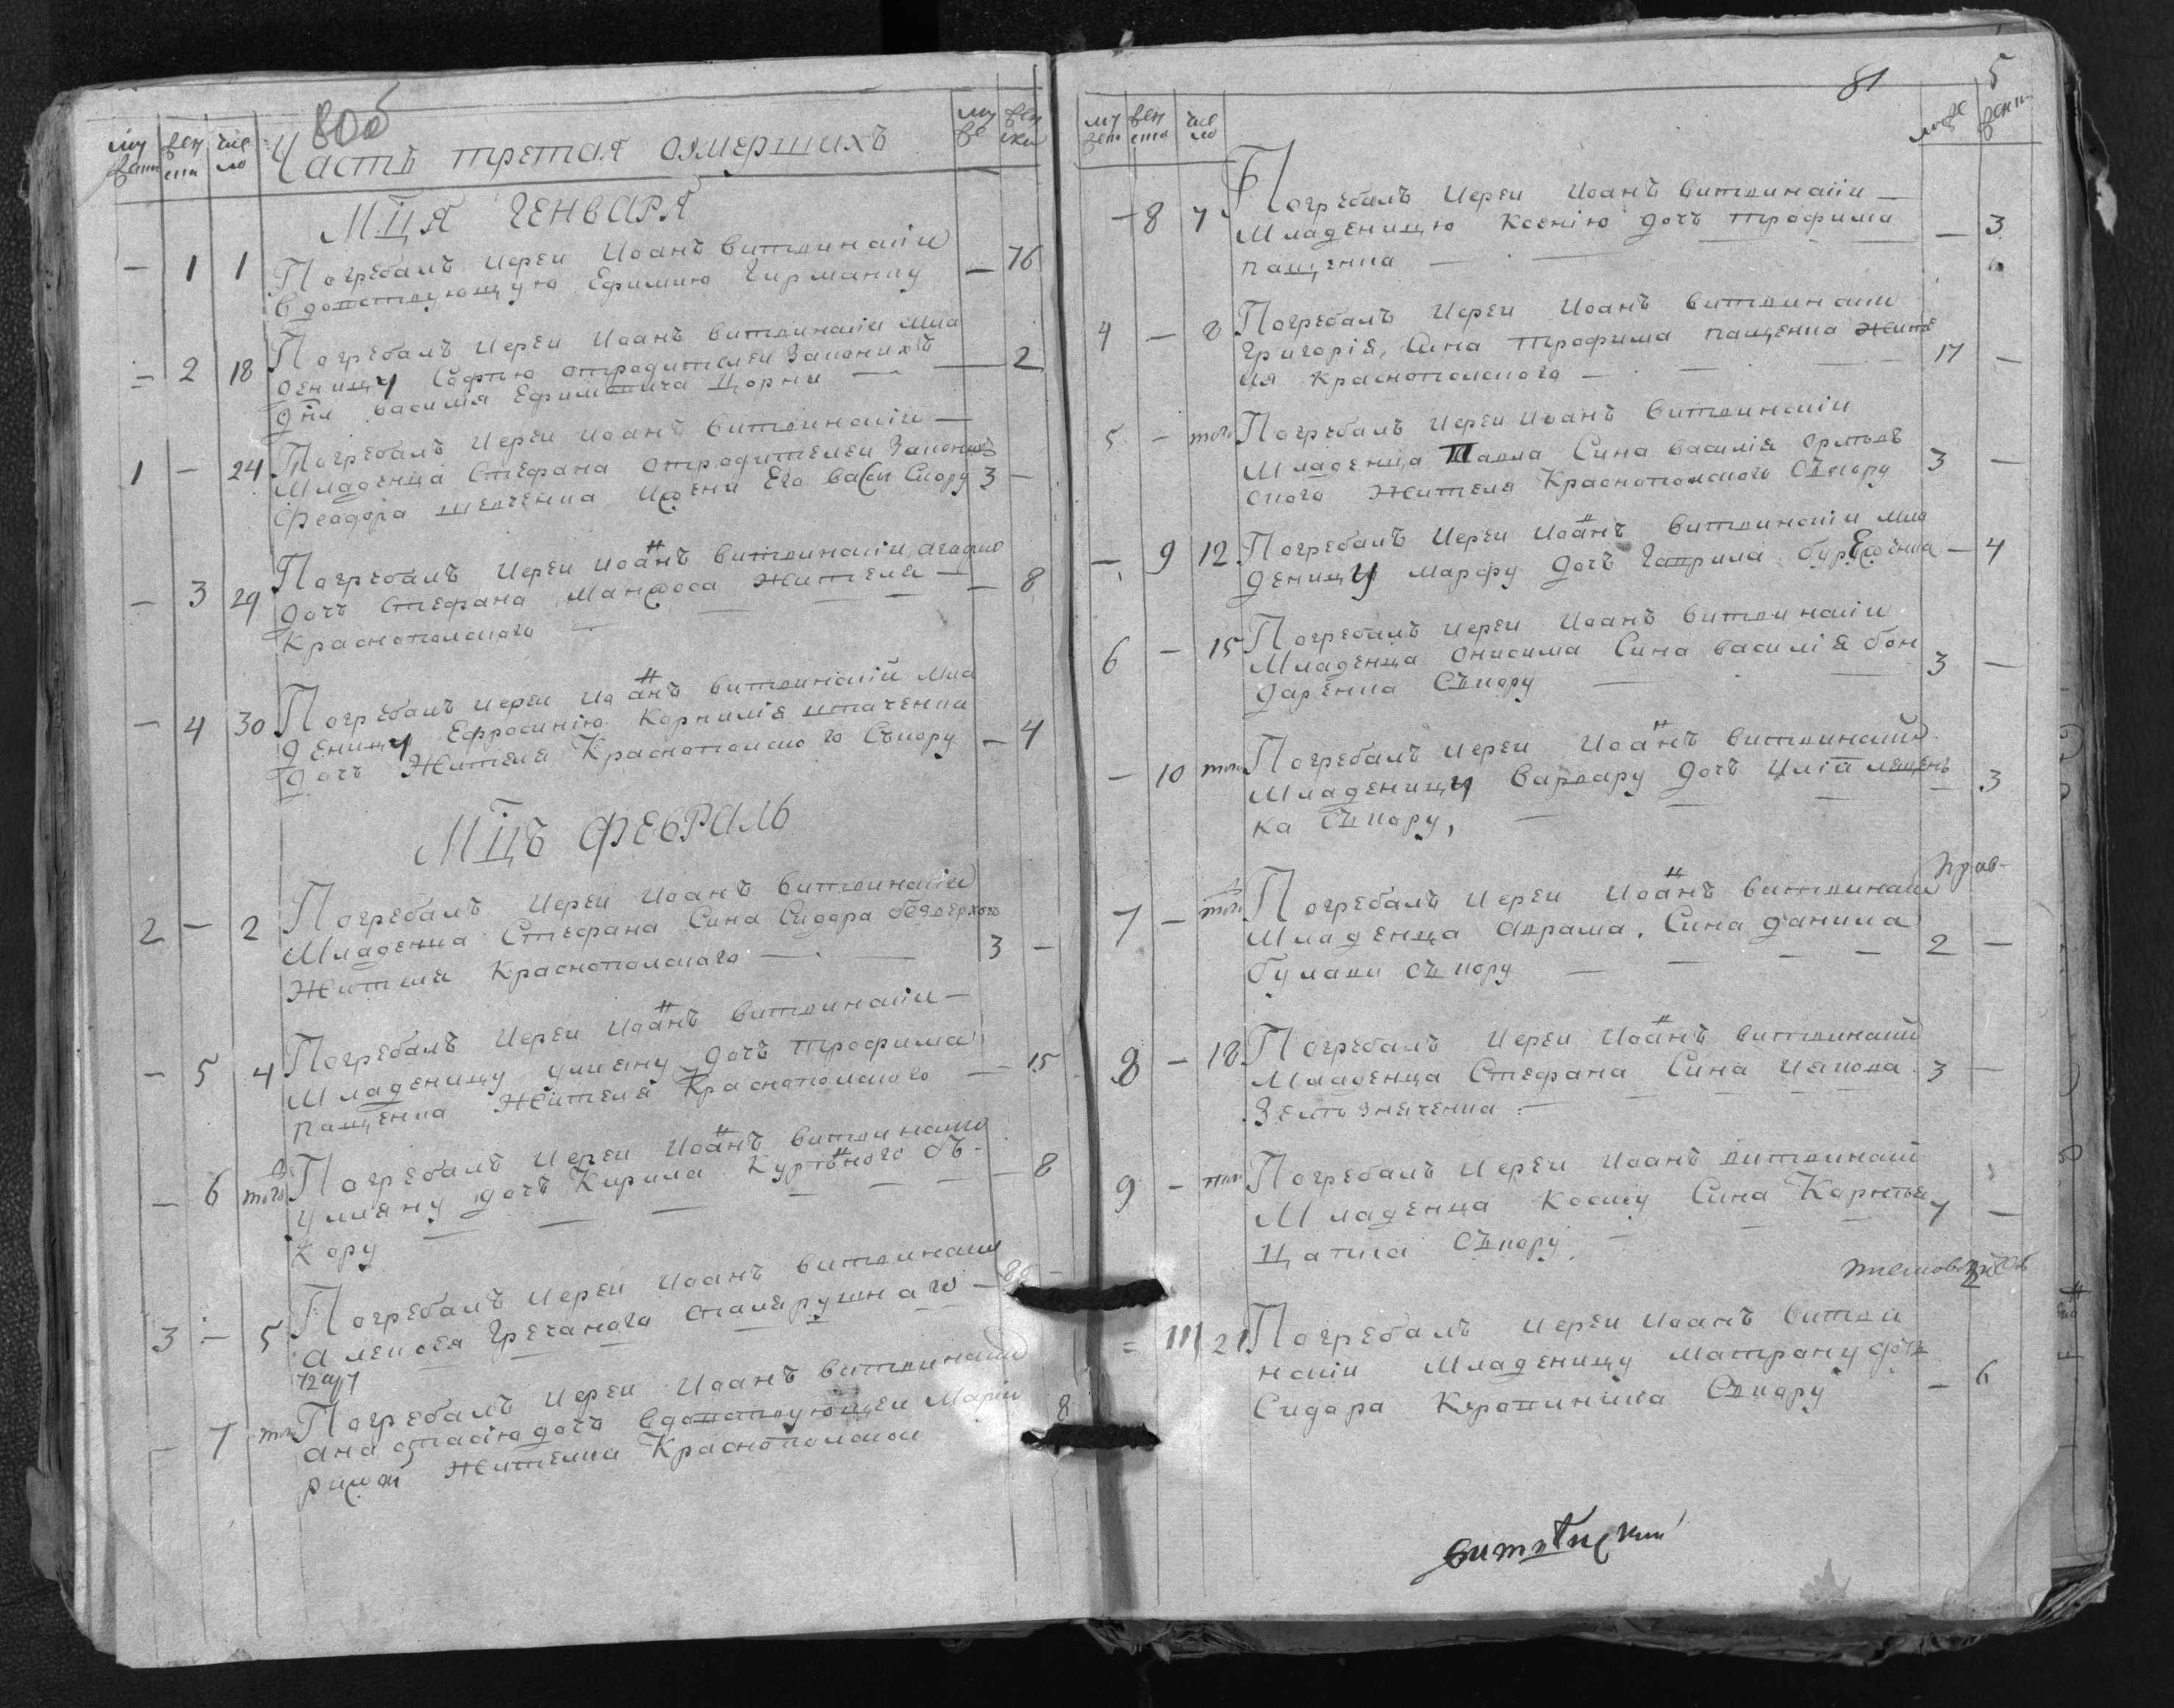 80об
му жеска женска число
Часть третая омершихъ
му же жен ска
МЦЯ ГЕНВАРЯ
— 1 1 Погребалъ Иереи Иоанъ витвинскіи
вдовствующую Ефимию Гирманку — 76
— 2 18 Погребалъ Иереи Иоанъ витвинскіи мла
деницу Софию отродителеи Законихъ — 2
василия Ефимовича Цорни
1 — 24 Погребалъ Иереи Иоанъ витвинскіи —
Младенца Стефана отродителеи Законихъ
Феодора шевченка Ижени Его 3 —
— 3 29 Погребалъ Иереи Иоанъ витвинскіи агафию
дочъ Стефана Манжоса Жителя — — 8
Краснополского —
— 4 30 Погребалъ Иереи Иоанъ витвинскій мла
деницу Ефросинію Корнилія ткаченка
дочъ Жителя Краснополского Съкору — 4
МЦЪ ФЕВРАЛЬ
2 — 2 Погребалъ Иереи Иоанъ витвинскіи
Младенца Стефана Сина Сидора безверхого
Жителя Краснополского — — 3 —
— 5 4 Погребалъ Иереи Иоанъ витвинскіи —
Младеницу улияну дочъ трофима
пащенка Жителя Краснополского — 15
— 6 того Погребалъ Иереи Иоанъ витвинскіи
улияну дочъ Кирила Курточного съ- — 8
кору — — — —
3 — 5 Погребалъ Иереи Иоанъ витвинскіи
алексея Гречаного — 86 —
— 7 того Погребалъ Иереи Иоанъ витвинскіи
анастасію дочъ вдовствующеи Маріи 8
Жителки Краснополскои
81
5
му жеска женска число
муже женск
— 8 7 Погребалъ Иереи Иоанъ витвинскіи —
Младеницю Ксенію дочъ трофима — 3
пащенка — —
4 — 8 Погребалъ Иереи Иоанъ витвинскіи
григорія, Сина трофима пащенка жите
ля Краснополского — — — 17 —
5 — того Погребалъ Иереи Иоанъ витвинскіи
Младенца Павла Сина василія
ского Жителя Краснополского Съкору 3 —
— 9 12 Погребалъ Иереи Иоанъ витвинскіи мла
деницу марфу дочъ гаврила — 4
6 — 15 Погребалъ Иереи Иоанъ витвинскіи
Младенца онисима Сина василія бон
даренка Съкору — — 3 —
— 10 того Погребалъ Иереи Иоанъ витвинскіи
Младеницу варвару дочъ Иліи лещен
ка Съкору, — — — — 3
7 — того Погребалъ Иереи Иоанъ витвинскіи
Младенца аврама, Сина данила
булавки Съкору — — — — 2 —
8 — 18 Погребалъ Иереи Иоанъ витвинскіи
Младенца Стефана Сина Иякова 3 —
— — — —
9 — того Погребалъ Иереи Иоанъ витвинскіи
Младенца косму Сина Карнъя 7 —
Съкору — — —
= 11 21 Погребалъ Иереи Иоанъ витви
нскіи Младеницу матрану дочъ
Сидора Съкору — 6
витвѣцкіи